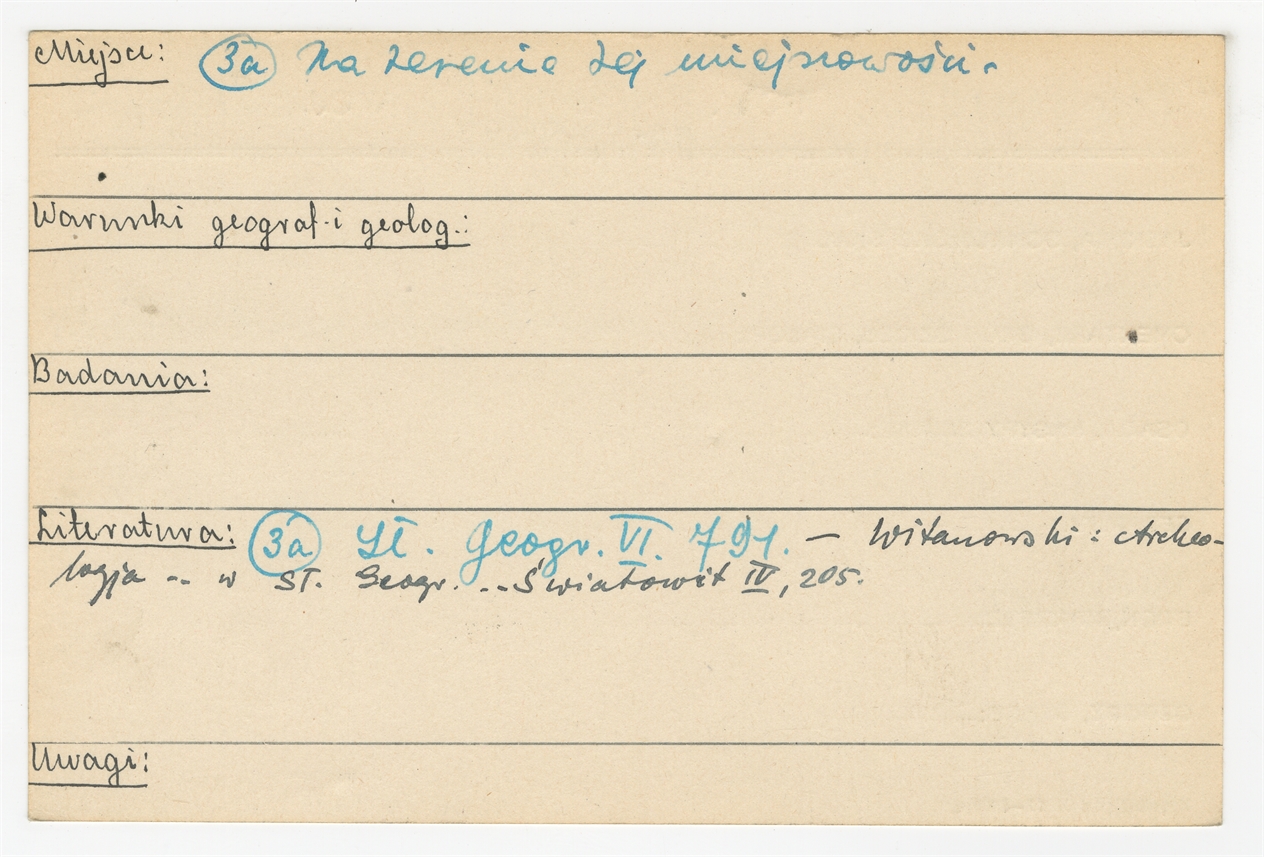 Miejsce: 3a Na terenie tej miejscowości.
Warunki geograf. i geolog.:
Badania:
Literatura: 3a Sł. Geogr. VI. 791. — Witanowski: Archeo-
logja -- w Sł. Geogr. -- Światowit IV, 205.
Uwagi: